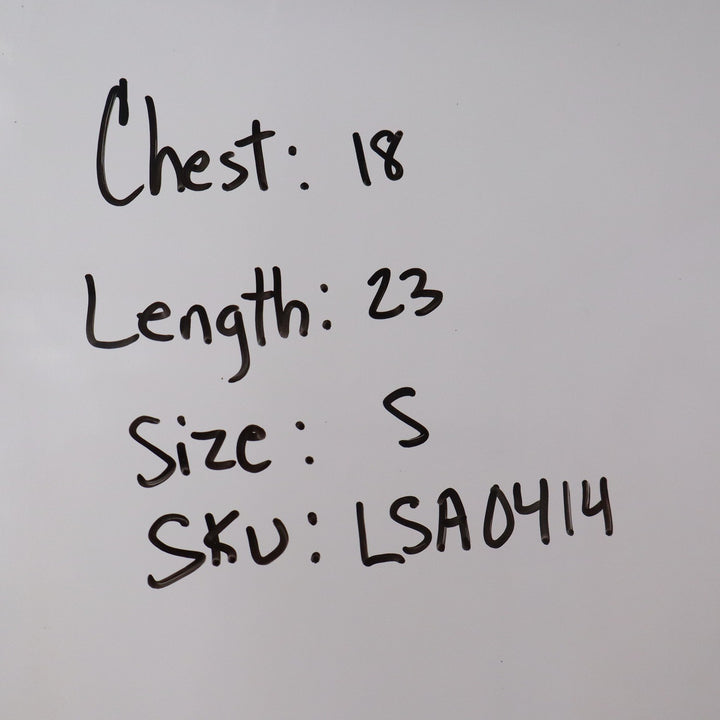 Chest: 18
Length: 23
Size: S
SKU: LSA0414